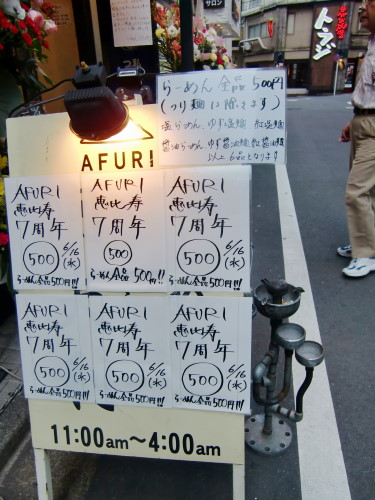 サロン
トラジ
らーめん 全品 500円
(つけ麺は除きます)
塩らーめん、ゆず塩麺、紅塩麺
醤油らーめん、ゆず醤油麺、紅醤油麺
以上 6品となります
AFURI
AFURI
恵比寿
7周年
500
6/16
(水)
らーめん全品500円!!!
AFURI
恵比寿
7周年
500
6/16
(水)
らーめん全品500円!!
AFURI
恵比寿
7周年
500
6/16
(水)
らーめん全品500円!!!
AFURI
恵比寿
7周年
500
6/16
(水)
らーめん全品500円!!!
AFURI
恵比寿
7周年
500
6/16
(水)
らーめん全品500円!!!
AFURI
恵比寿
7周年
500
6/16
(水)
らーめん全品500円!!!
11:00am～4:00am